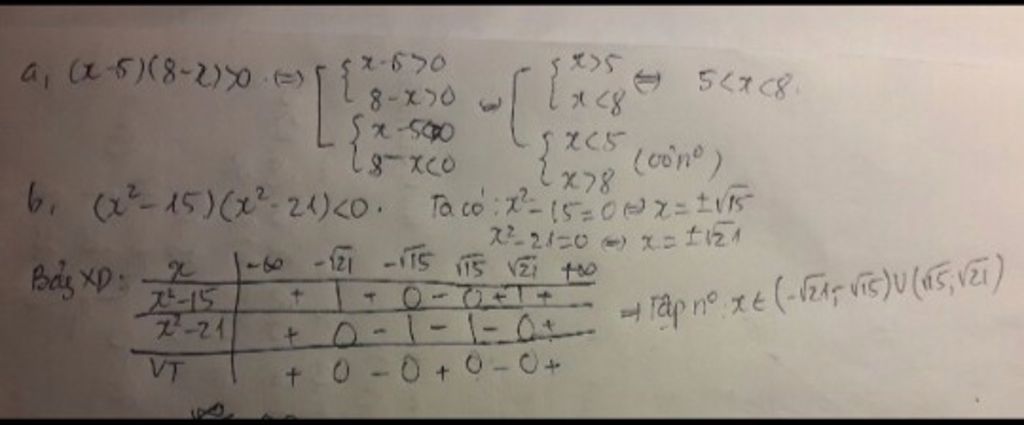 a, (x-5)(8-x)>0 ⇔ [ { x-5>0 ⇔ [ { x>5 ⇔ 5<x<8.
8-x>0 x<8
{ x-5<0 { x<5
8-x<0 x>8 (vô nº)
b, (x²-15)(x²-21)<0. Ta có: x²-15=0 ⇔ x=±√15
x²-21=0 ⇔ x=±√21
Bảng XD: x | -∞ -√21 -√15 √15 √21 +∞
x²-15 | + | + 0 - 0 + | +
x²-21 | + 0 - | - | - 0 +
VT | + 0 - 0 + 0 - 0 +
⇒ Tập nº x ∈ (-√21; -√15) ∪ (√15; √21)